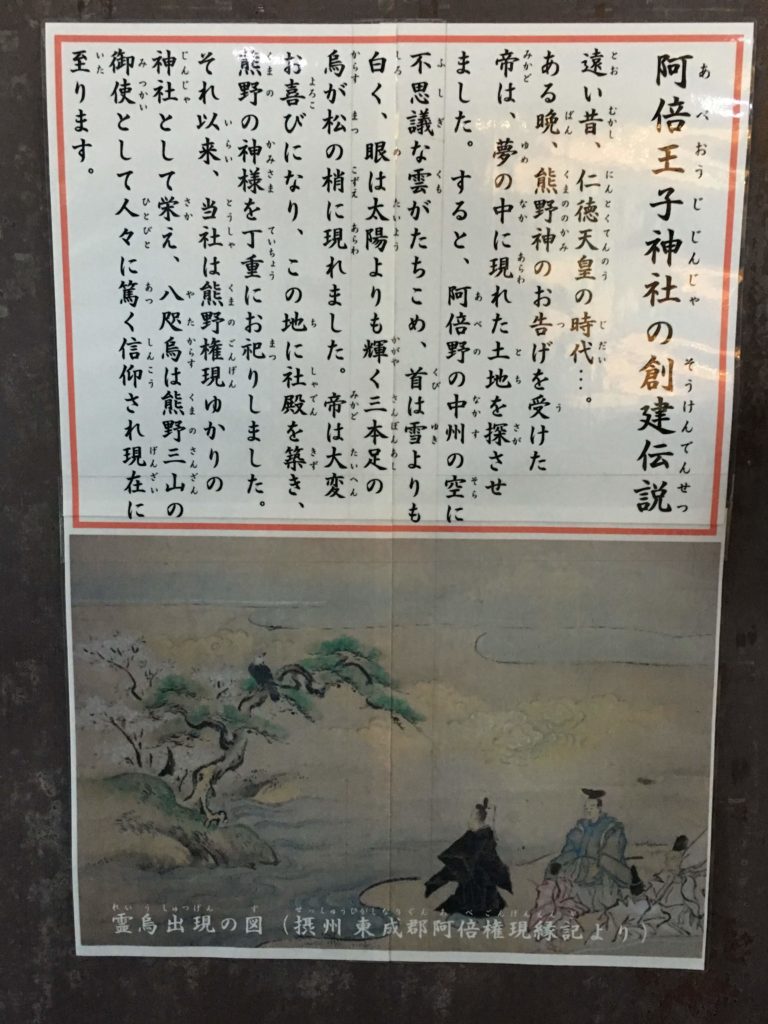 阿倍王子神社の創建伝説
遠い昔、仁徳天皇の時代…。
ある晩、熊野神のお告げを受けた
帝は、夢の中に現れた土地を探させ
ました。すると、阿倍野の中州の空に
不思議な雲がたちこめ、首は雪よりも
白く、眼は太陽よりも輝く三本足の
烏が松の梢に現れました。帝は大変
お喜びになり、この地に社殿を築き、
熊野の神様を丁重にお祀りしました。
それ以来、当社は熊野権現ゆかりの
神社として栄え、八咫烏は熊野三山の
御使として人々に篤く信仰され現在に
至ります。
霊烏出現の図（摂州東成郡阿倍権現縁記より）